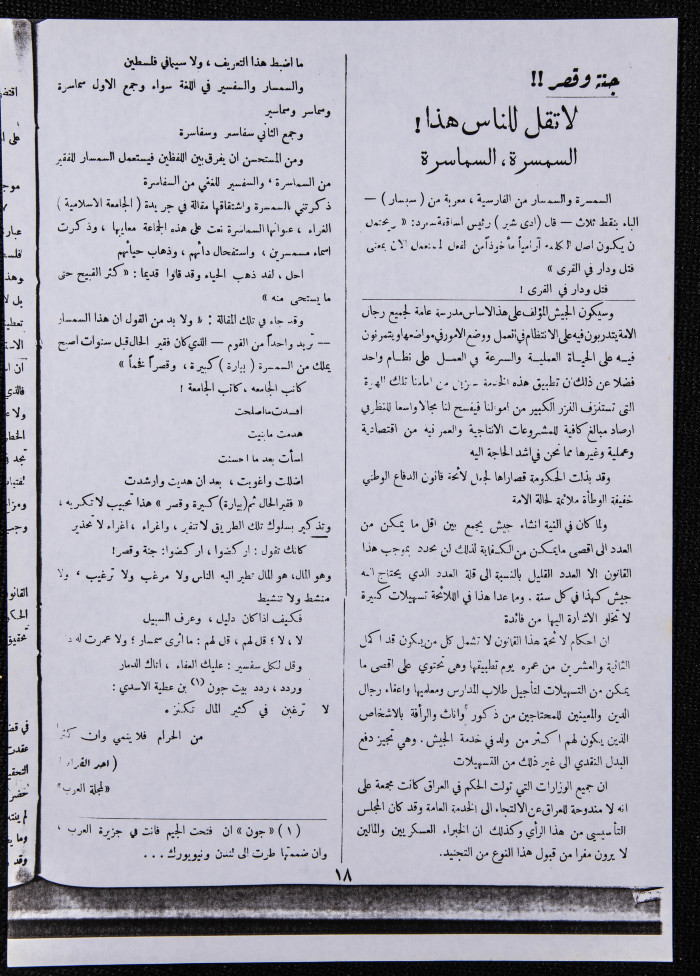 جنة وقصر !!
لا تقل للناس هذا !
السمسرة ، السماسرة
السمسرة والسمسار من الفارسية ، معربة من ( سبسار ) —
الباء بنقط ثلاث — قال ( ادى شير ) رئيس اساقفة سعرد : « ويحتمل
ن يكون اصل الكلمة آرامياً مأخوذاً من لفعل المنعمل الآن بمعنى
فتل ودار في القرى »
فتل ودار في القرى !
وسيكون الجيش المؤلف على هذا الاساس مدرسة عامة لجميع رجال
الامة يتدربون فيه على الانتظام في العمل ووضع الامور في مواضعها ويتمرنون
فيه على الحياة العملية والسرعة في العمل على نظام واحد
فضلا عن ذلك ان تطبيق هذه الخدمة من امامنا تلك
التى تستغزف الغزر الكبير من اموالنا فيفسح لنا مجالا واسعا للنظر في
ارصاد مبالغ كافية للمشروعات الانتاجية والعمرانية من اقتصادية
وعملية وغيرها مما نحن في اشد الحاجة اليه
وقد بذلت الحكومة قصاراها لجعل لائحة قانون الدفاع الوطني
خفيفة الوطأة ملائمة لحالة الامة
ولما كان في النية انشاء جيش يجمع بين اقل ما يمكن من
العدد الى اقصى ما يمكن من الكفاية لذلك لن يجدد بموجب هذا
القانون الا العدد القليل بالنسبة الى قلة العدد الذي يحتاج اليه
جيش كهذا في كل سنة . وما عدا هذا في اللائحة تسهيلات كبيرة
لا تخلو الاشارة اليها من فائدة
ان احكام لائحة هذا القانون لا تشمل كل من يكون قد اكمل
الثانية والعشرين من عمره يوم تطبيقها وهى تحتوي على اقصى ما
يمكن من التسهيلات لتأجيل طلاب المدارس ومعلميها واعفاء رجال
الدين والمعينين للمحتاجين من ذكور واناث والرأفة بالاشخاص
الذين يكون لهم اكثر من ولد في خدمة الجيش . وهي تجيز دفع
البدل النقدي الى غير ذلك من التسهيلات
ان جميع الوزارات التي تولت الحكم في العراق كانت مجمعة على
انه لا مندوحة للعراق عن الالتجاء الى الخدمة العامة وقد كان المجلس
التأسيسى من هذا الرأي وكذلك ان الخبراء العسكريين والمالين
لا يرون مفرا من قبول هذا النوع من التجنيد.
ما اضبط هذا التعريف ، ولا سيما في فلسطين
والسمسار والسفسير في اللغة سواء وجمع الاول سماسرة
وسماسر وسماسير
وجمع الثاني سفاسر وسفاسرة
ومن المستحسن ان يفرق بين اللفظين فيستعمل السمسار للفقير
من السماسرة ، والسفسير للغني من السفاسرة
ذكرتني بالسمسرة واشتقاقها مقالة في جريدة ( الجامعة الاسلامية )
الغراء ، عنوانها السماسرة نعت على هذه الجماعة معايبها ، وذكرت
اسماء مسمسرين ، واستفحال دائهم ، وذهاب حيائهم
اجل ، لقد ذهب الحياء وقد قالوا قديما : « كثر القبيح حتى
ما يستحى منه »
وقد جاء في تلك المقالة : « ولا بد من القول ان هذا السمسار
— تريد واحداً من القوم — الذي كان فقير الحال قبل سنوات اصبح
يملك من السمسرة ( بيارة ) كبيرة ، وقصراً فخماً »
كاتب الجامعه ، كاتب الجامعة !
افسدت ما اصلحت
هدمت ما بنيت
اسأت بعد ما احسنت
اضللت واغويت ، بعد ان هديت وارشدت
« فقير الحال ثم (بيارة) كبيرة وقصر » هذا تحبيب لا تكريه ،
وتذكير بسلوك تلك الطريق لا تنفير ، واغراء ، اغراء لا تحذير
كانك تقول : اركضوا ، اركضوا: جنة وقصر!
وهو المال، هو المال تطير اليه الناس ولا مرغب ولا ترغيب ، ولا
منشط ولا تنشيط
فكيف اذا كان دليل ، وعرف السبيل
لا ، لا ؛ قل لهم ، قل لهم : ما اثرى سمسار ؛ ولا عمرت له
وقل لكل سفسير : عليك العفاء ، اتاك الدمار
وردد ، ردد بيت جون (١) بن عطية الاسدي :
لا ترغبن في كثير المال تكنزه
من الحرام فلا ينمي وان كثرا
«لمجلة العرب»
( ١ ) « جون » ان فتحت الجيم فانت في جزيرة العرب ،
وان ضممتها طرت الى لندن ونيويورك ...
١٨